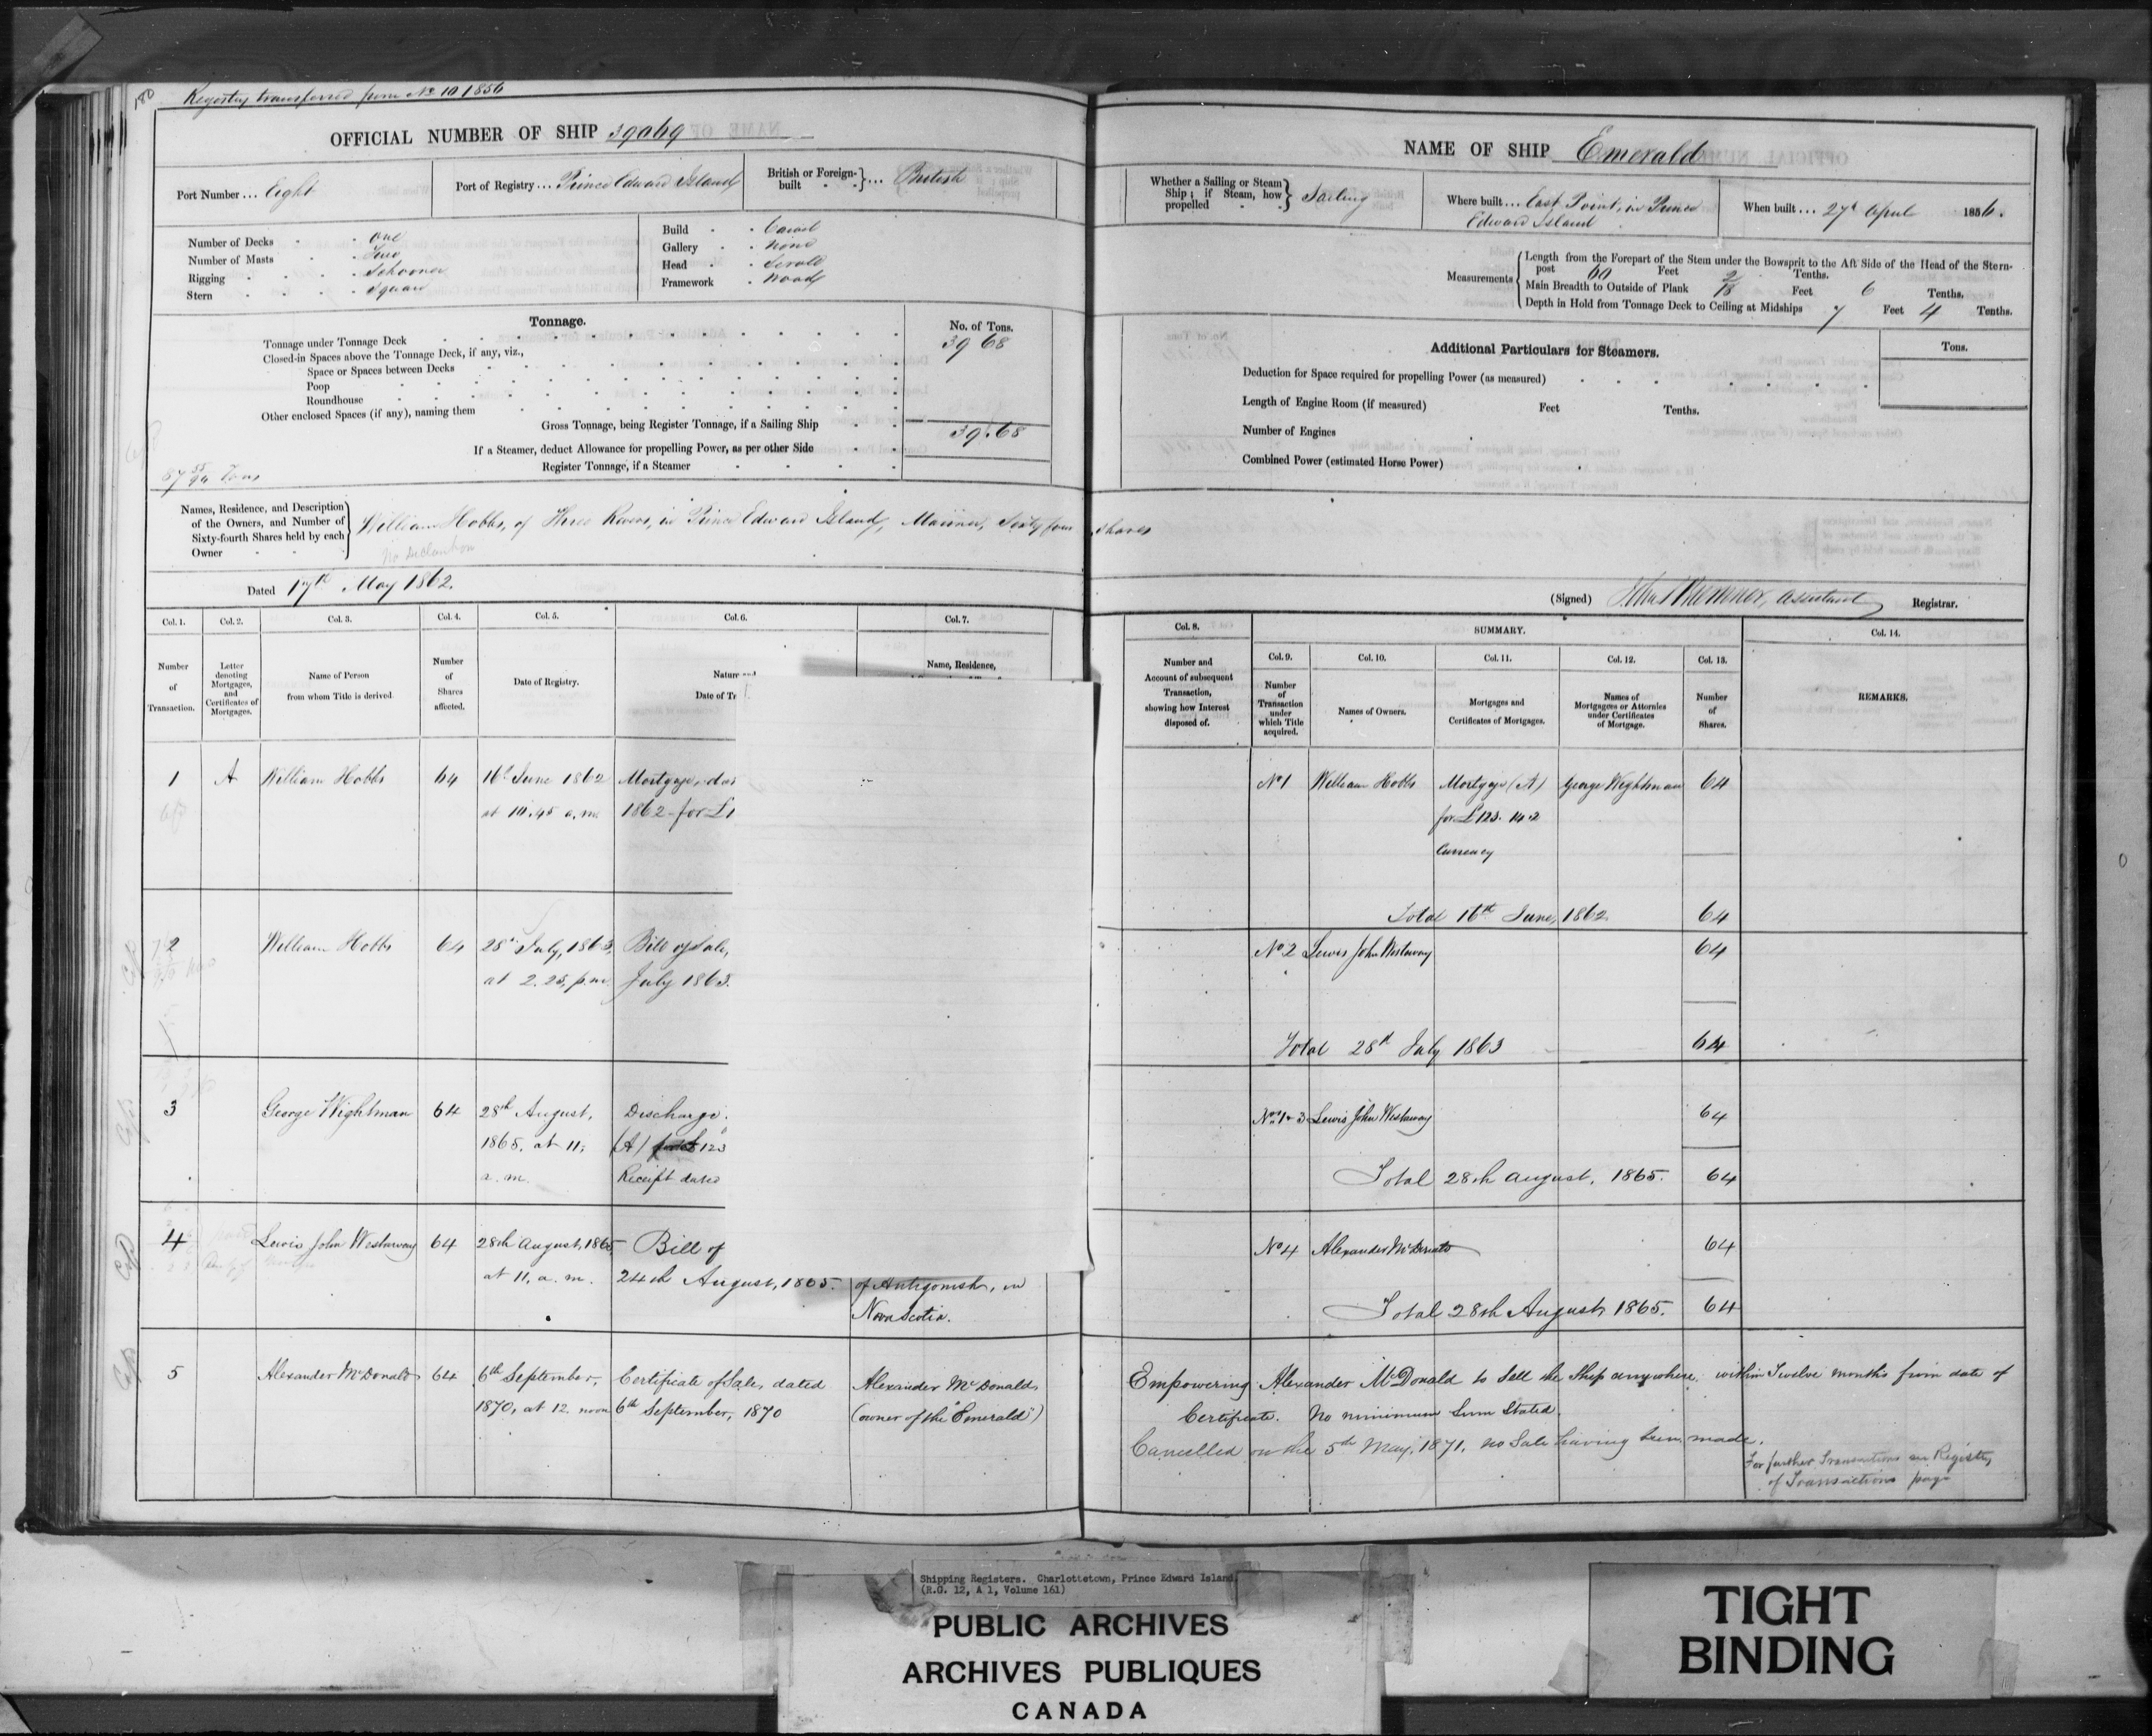 180
Registry transferred from No 10 1856
OFFICIAL NUMBER OF SHIP 39069
Port Number ... Eight
Port of Registry ... Prince Edward Island
British or Foreign-built } ... British
Number of Decks one
Number of Masts Two
Rigging Schooner
Stern Square
Build Carvel
Gallery None
Head Scroll
Framework Wood
Tonnage.
No. of Tons.
Tonnage under Tonnage Deck 39 68
Closed-in Spaces above the Tonnage Deck, if any, viz.,
Space or Spaces between Decks
Poop
Roundhouse
Other enclosed Spaces (if any), naming them
Gross Tonnage, being Register Tonnage, if a Sailing Ship 39.68
If a Steamer, deduct Allowance for propelling Power, as per other Side
Register Tonnage, if a Steamer
Tons
Names, Residence, and Description of the Owners, and Number of Sixty-fourth Shares held by each Owner
William Hobbs, of Three Rivers, in Prince Edward Island, Mariner, Sixty four shares
No declaration
Dated 17th May 1862.
NAME OF SHIP Emerald
Whether a Sailing or Steam Ship; if Steam, how propelled } Sailing
Where built ... East Point, in Prince
Edward Island
When built ... 27th April 1856.
Measurements
Length from the Forepart of the Stem under the Bowsprit to the Aft Side of the Head of the Stern-
post 60 Feet 2 Tenths.
Main Breadth to Outside of Plank 18 Feet 6 Tenths,
Depth in Hold from Tonnage Deck to Ceiling at Midships 7 Feet 4 Tenths.
Additional Particulars for Steamers.
Tons.
Deduction for Space required for propelling Power (as measured)
Length of Engine Room (if measured) Feet Tenths.
Number of Engines
Combined Power (estimated Horse Power)
(Signed) assistant Registrar.
Col. 1. Col. 2. Col. 3. Col. 4. Col. 5. Col. 6. Col. 7.
Number of Transaction.
Letter denoting Mortgages, and Certificates of Mortgages.
Name of Person from whom Title is derived
Number of Shares affected.
Date of Registry.
Nature and
Date of Tr
Name, Residence,
Col. 8. SUMMARY. Col. 14.
Col. 9. Col. 10. Col. 11. Col. 12. Col. 13.
Number and Account of subsequent Transaction, showing how Interest disposed of.
Number of Transaction under which Title acquired.
Names of Owners.
Mortgages and Certificates of Mortgages.
Names of Mortgagees or Attornies under Certificates of Mortgage.
Number of Shares.
REMARKS.
1 A William Hobbs 64 16th June 1862 Mortgage, dat
at 10.45 a.m. 1862 for £1
No 1 William Hobbs Mortgage (A) George Wightman 64
for £123. 14.2
Currency
Total 16th June, 1862. 64
2 William Hobbs 64 28th July, 1863, Bill of Sale,
at 2.25, p.m. July 1863.
No 2 Lewis John Westaway 64
Total 28th July 1863 64
3 George Wightman 64 28th August, Discharge
1865, at 11, (A) £123
a.m. Receipt dated
Nos 1 & 3 Lewis John Westaway 64
Total 28th August, 1865. 64
4 Lewis John Westaway 64 28th August, 1865 Bill of
at 11, a.m. 24th August, 1865. of Antigonish, in
Nova Scotia.
No 4 Alexander McDonald 64
Total 28th August 1865. 64
5 Alexander McDonald 64 6th September, Certificate of Sale, dated Alexander McDonald,
1870, at 12. noon 6th September, 1870 (owner of the "Emerald")
Empowering Alexander McDonald to Sell the Ship anywhere within Twelve months from date of
Certificate. No minimum Sum Stated.
Cancelled on the 5th May, 1871, no Sale having been made.
For further Transactions see Register
of Transactions page
Shipping Registers. Charlottetown, Prince Edward Island
(R.G. 12, A 1, Volume 161)
PUBLIC ARCHIVES
ARCHIVES PUBLIQUES
CANADA
TIGHT
BINDING